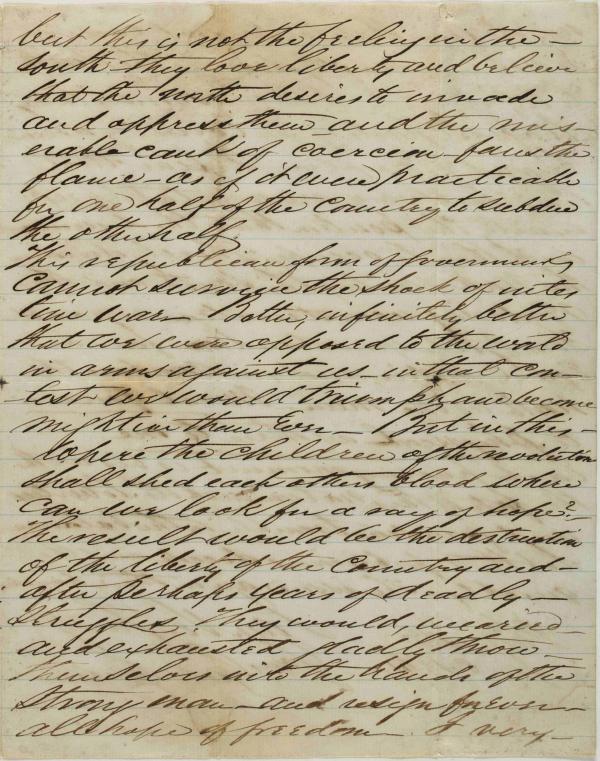 but this is not the feeling in the -
South They love liberty and believe
that the north desires to invade
and oppress them and the mis-
erable cant of coercion fans the
flame - as if it were practicable
for one half of the country to subdue
the other half
This republican form of Government
cannot survive the shock of intes
tine war - Better, infinitely better
that we were opposed to the world
in arms against us - in that con-
-test we would triumph and become
mightier than Ever - But in this -
Where the children of the revolution
shall shed each others blood where
can we look for a ray of hope?
The result would be the destruction
of the liberty of the Country and -
after perhaps years of deadly -
struggles They would, wearied -
and exhausted gladly throw -
themselves into the hands of the
strong man - and resign forever -
all hope of freedom - I very -